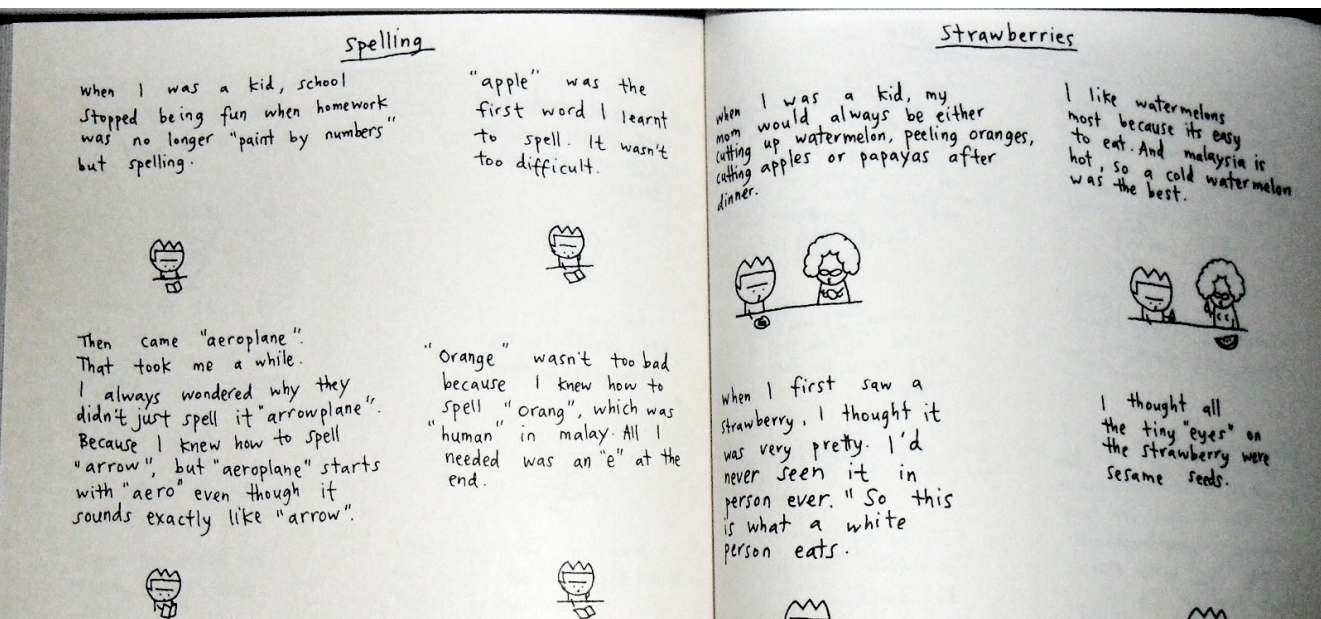 Spelling
when I was a kid, school
stopped being fun when homework
was no longer "paint by numbers"
but spelling.
"apple" was the
first word I learnt
to spell. It wasn't
too difficult.
Then came "aeroplane".
That took me a while.
I always wondered why they
didn't just spell it "arrowplane".
Because I knew how to spell
"arrow", but "aeroplane" starts
with "aero" even though it
sounds exactly like "arrow".
"Orange" wasn't too bad
because I knew how to
spell "orang", which was
"human" in malay. All I
needed was an "e" at the
end.
Strawberries
when I was a kid, my
mom would always be either
cutting up watermelon, peeling oranges,
cutting apples or papayas after
dinner.
I like watermelons
most because its easy
to eat. And malaysia is
hot, so a cold watermelon
was the best.
when I first saw a
strawberry, I thought it
was very pretty. I'd
never seen it in
person ever. "So this
is what a white
person eats.
I thought all
the tiny "eyes" on
the strawberry were
sesame seeds.